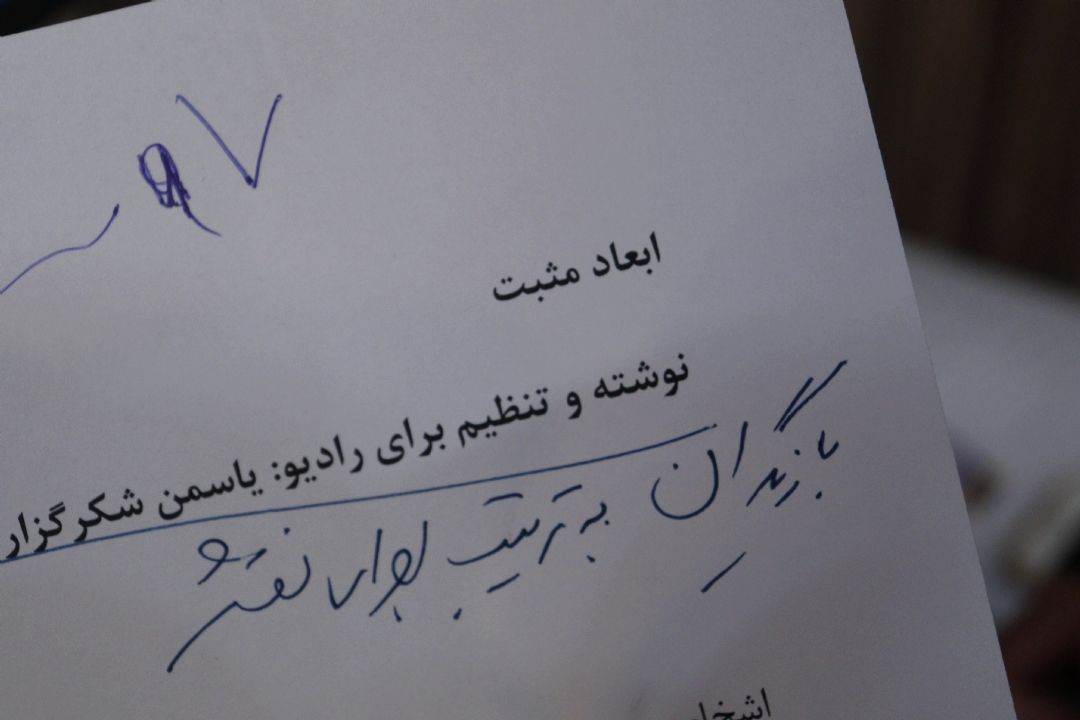 ۹۷
ابعاد مثبت
نوشته و تنظیم برای رادیو: یاسمن شکرگزار
بازیگران به ترتیب ایفای نقش